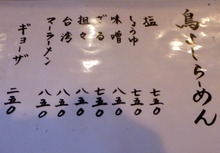 鳥よしらーめん
塩 七五〇
しょうゆ 七五〇
味噌 八五〇
ざる 七五〇
担々 八五〇
台湾 八五〇
マーラーメン 八五〇
ギョーザ 二五〇